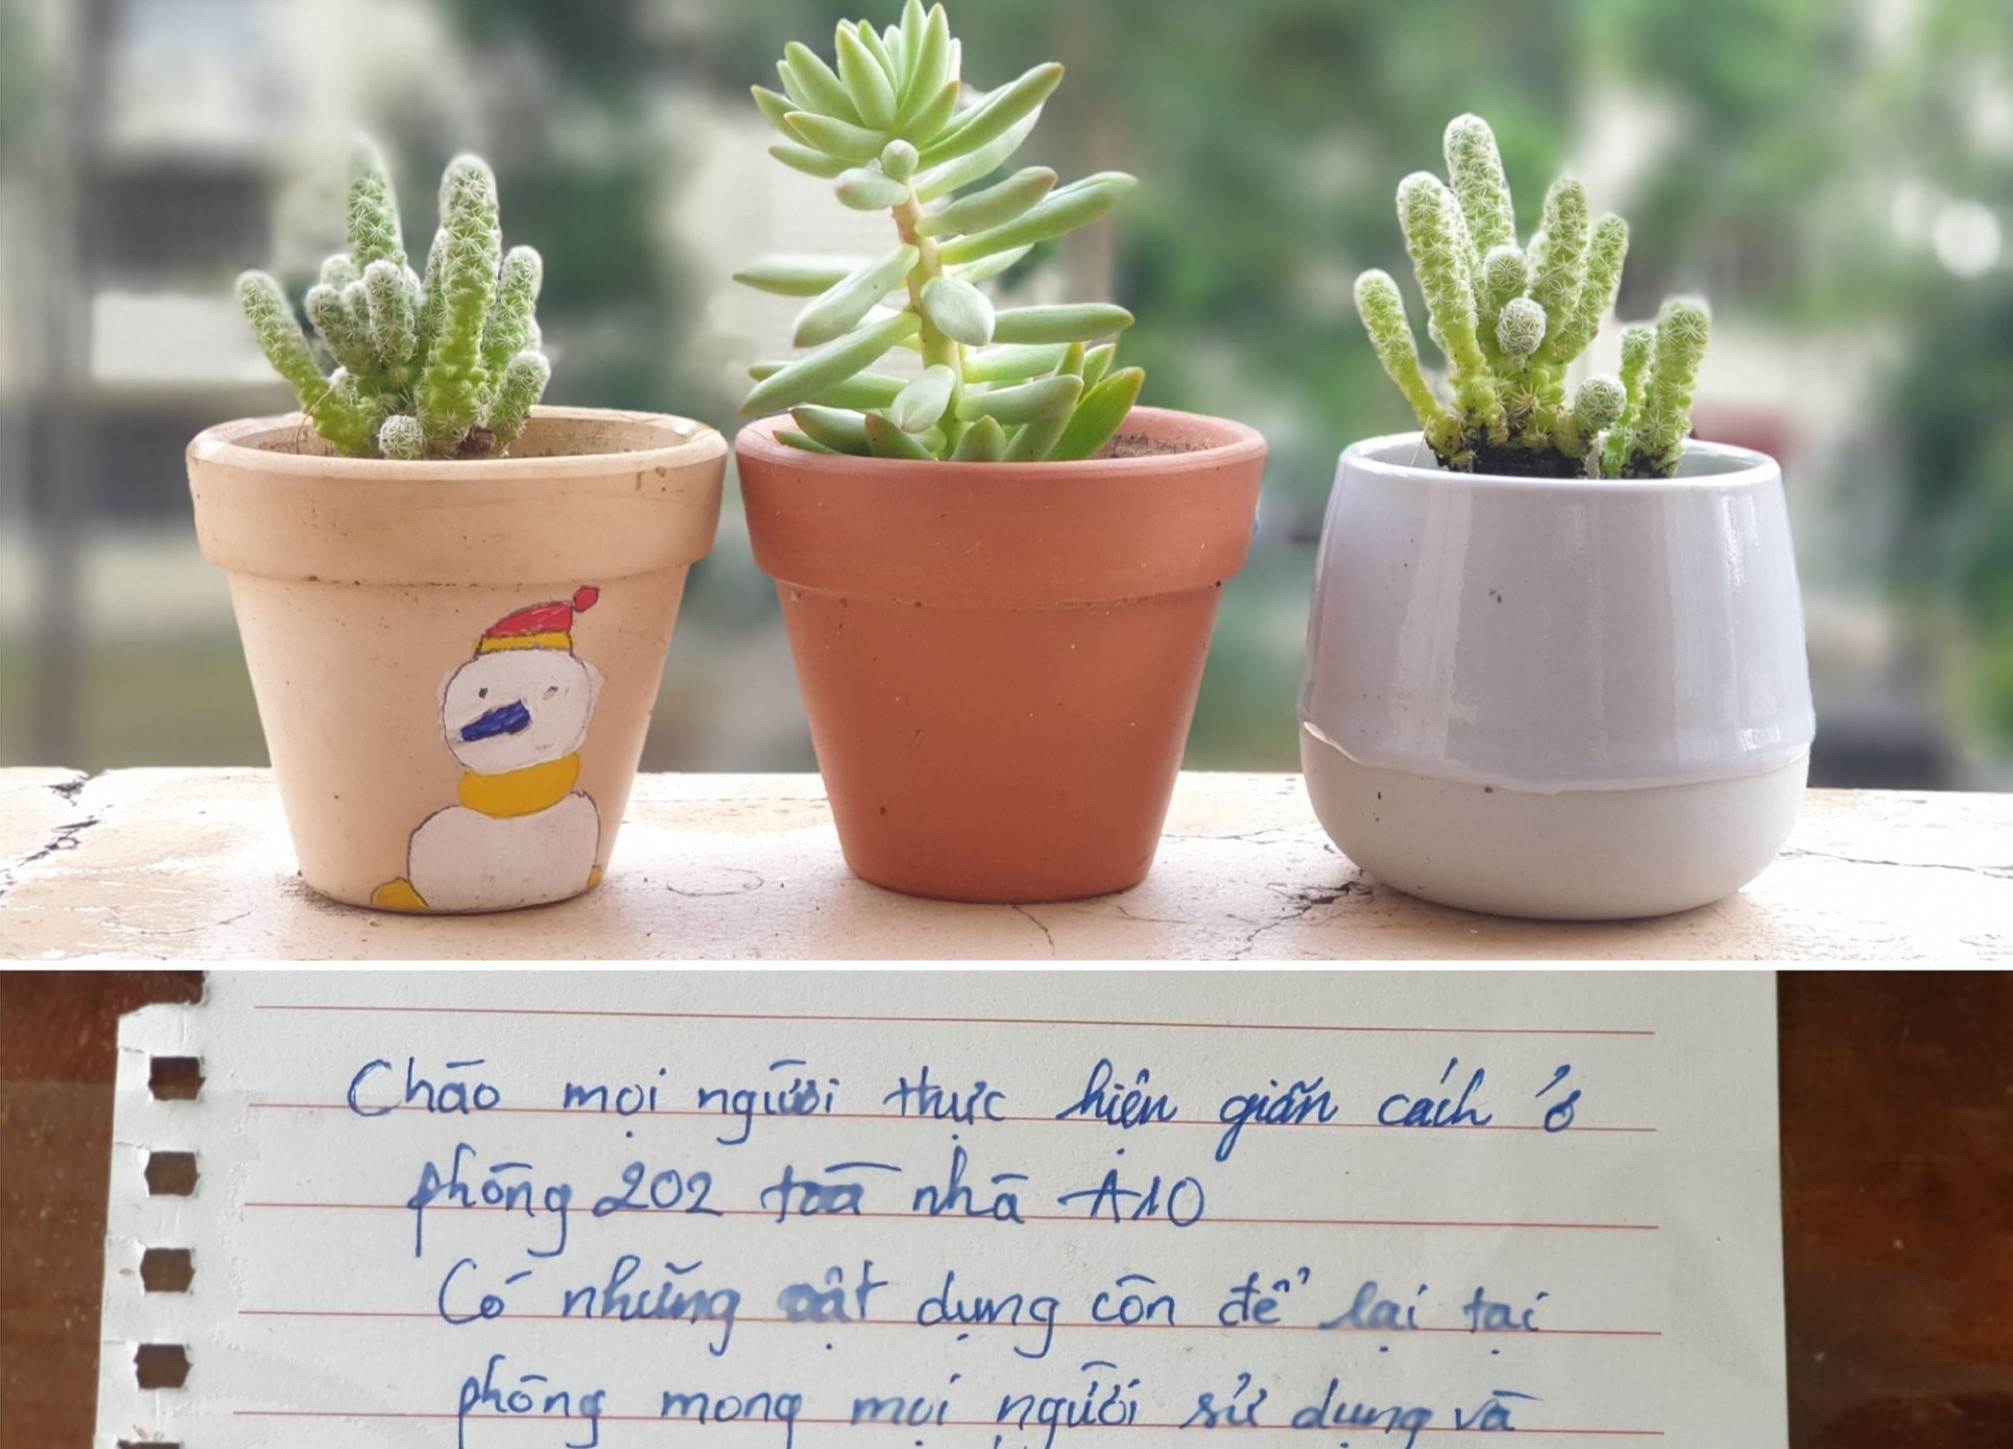 Chào mọi người thực hiện giãn cách ở
phòng 202 toà nhà A10
Có những vật dụng còn để lại tại
phòng mong mọi người sử dụng và